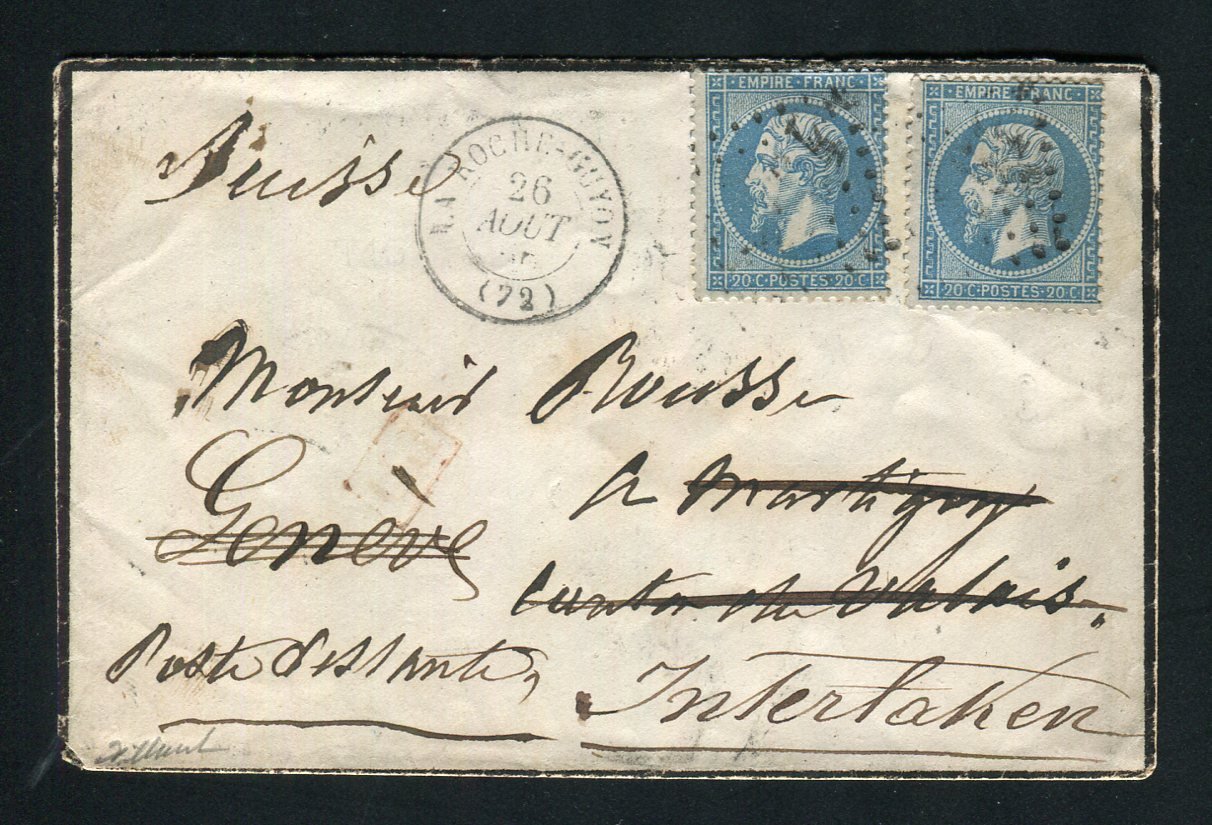 Suisse
LA ROCHE-GUYON
26
AOUT
(72)
EMPIRE·FRANC
20·C·POSTES·20·C
EMPIRE·FRANC
20·C·POSTES·20·C
Monsieur Rousse
a Martigny
Genève
Canton du Valais.
Poste restante,
Interlaken